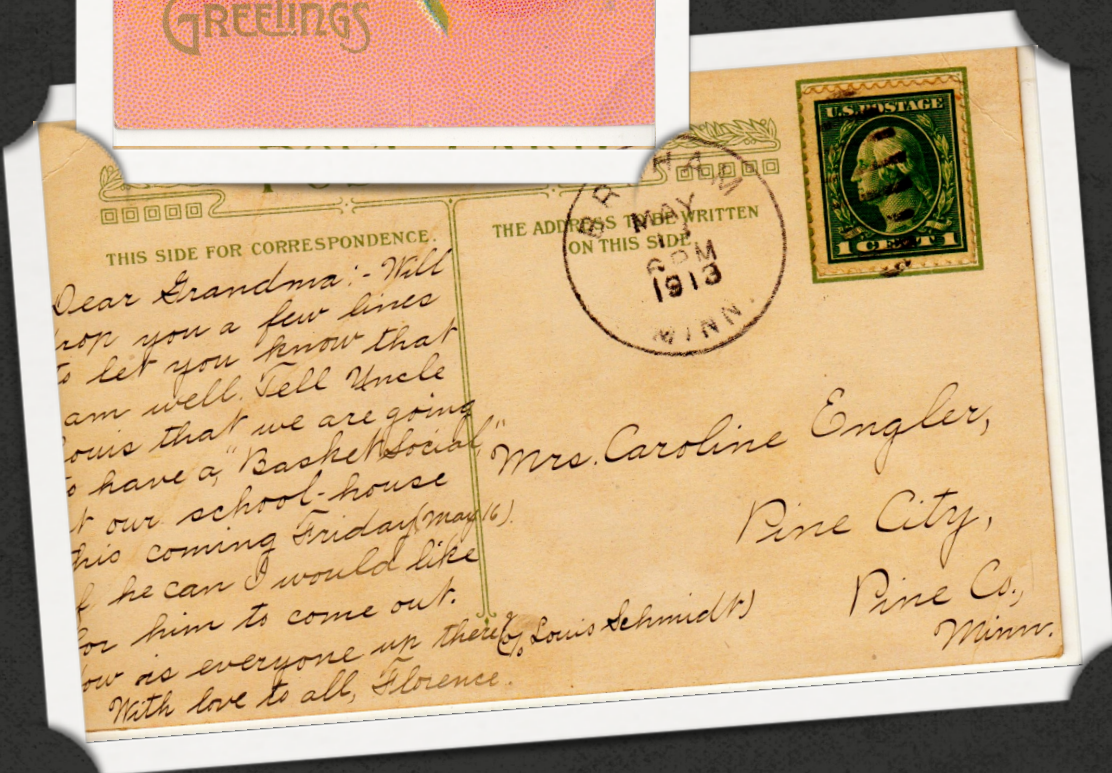 GREETINGS
POST CARD
THIS SIDE FOR CORRESPONDENCE.
THE ADDRESS TO BE WRITTEN
ON THIS SIDE
BRAHAM
MAY
6 PM
1913
MINN.
U.S. POSTAGE
1 CENT 1
Dear Grandma:- Will
rop you a few lines
o let you know that
am well. Tell Uncle
ouis that we are going
o have a "Basket Social"
t our school-house
his coming Friday (May 16).
f he can I would like
or him to come out.
ow is everyone up there?
With love to all, Florence.
Mrs. Caroline Engler,
Pine City,
Pine Co.,
Minn.
c/o Louis Schmidt)